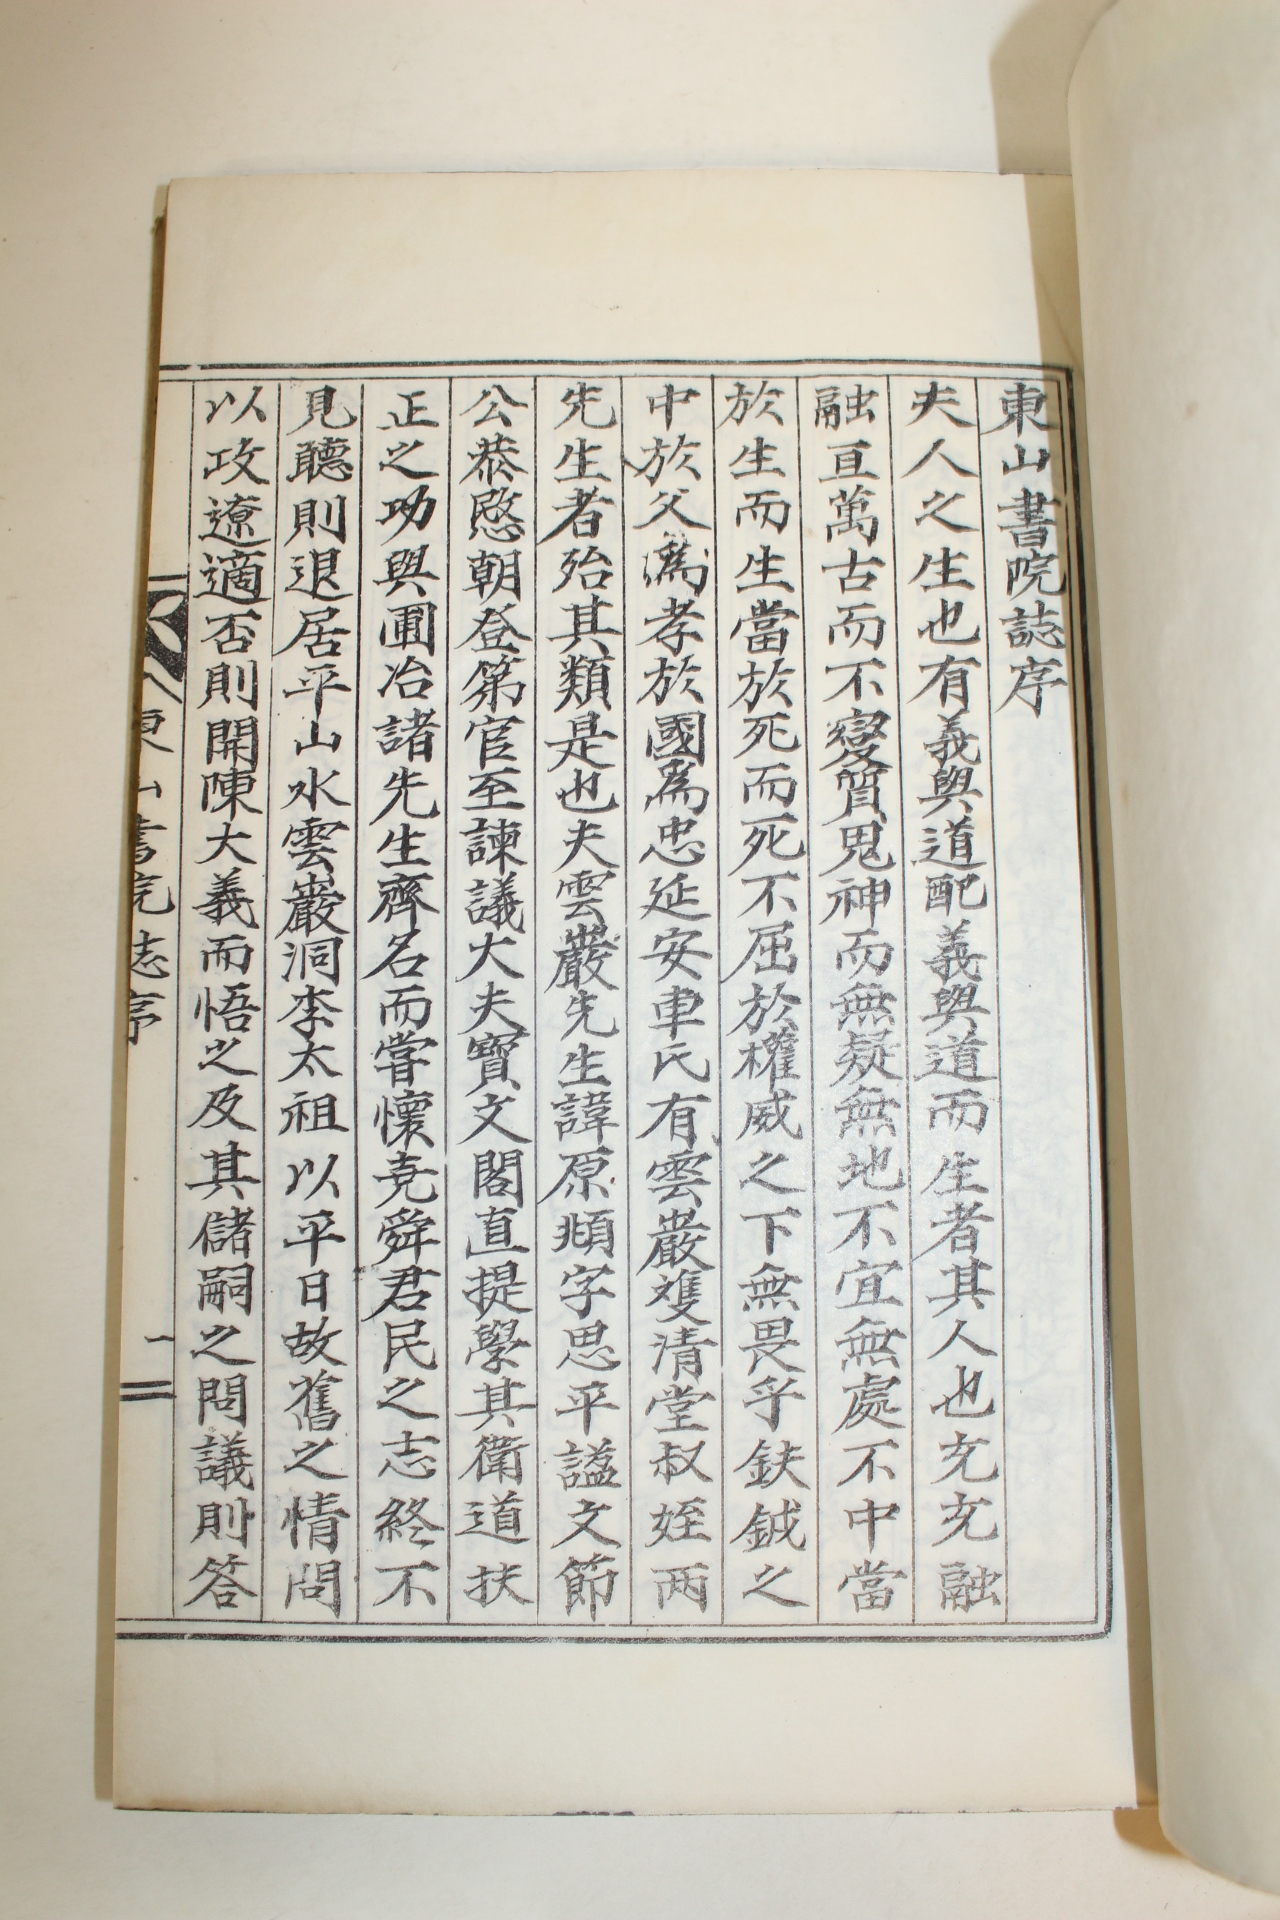 東山書院誌序
夫人之生也有義與道配義與道而生者其人也充充融
融亘萬古而不變質鬼神而無疑無地不宜無處不中當
於生而生當於死而死不屈於權威之下無畏乎鈇鉞之
中於父為孝於國為忠延安車氏有雲巖雙清堂叔姪兩
先生者殆其類是也夫雲巖先生諱原頫字思平諡文節
公恭愍朝登第官至諫議大夫寶文閣直提學其衛道扶
正之功與圃冶諸先生齊名而嘗懷堯舜君民之志終不
見聽則退居平山水雲巖洞李太祖以平日故舊之情問
以政遼適否則開陳大義而悟之及其儲嗣之問議則答
東山書院誌序
一